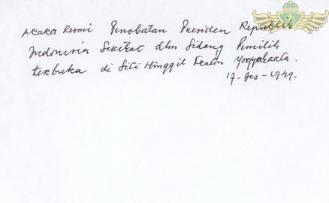 Acara Resmi Penobatan Presiden Republik
Indonesia Serikat dlm Sidang Pemilih
terbuka di Siti Hinggil Keraton Yogyakarta.
17-Des-1949.